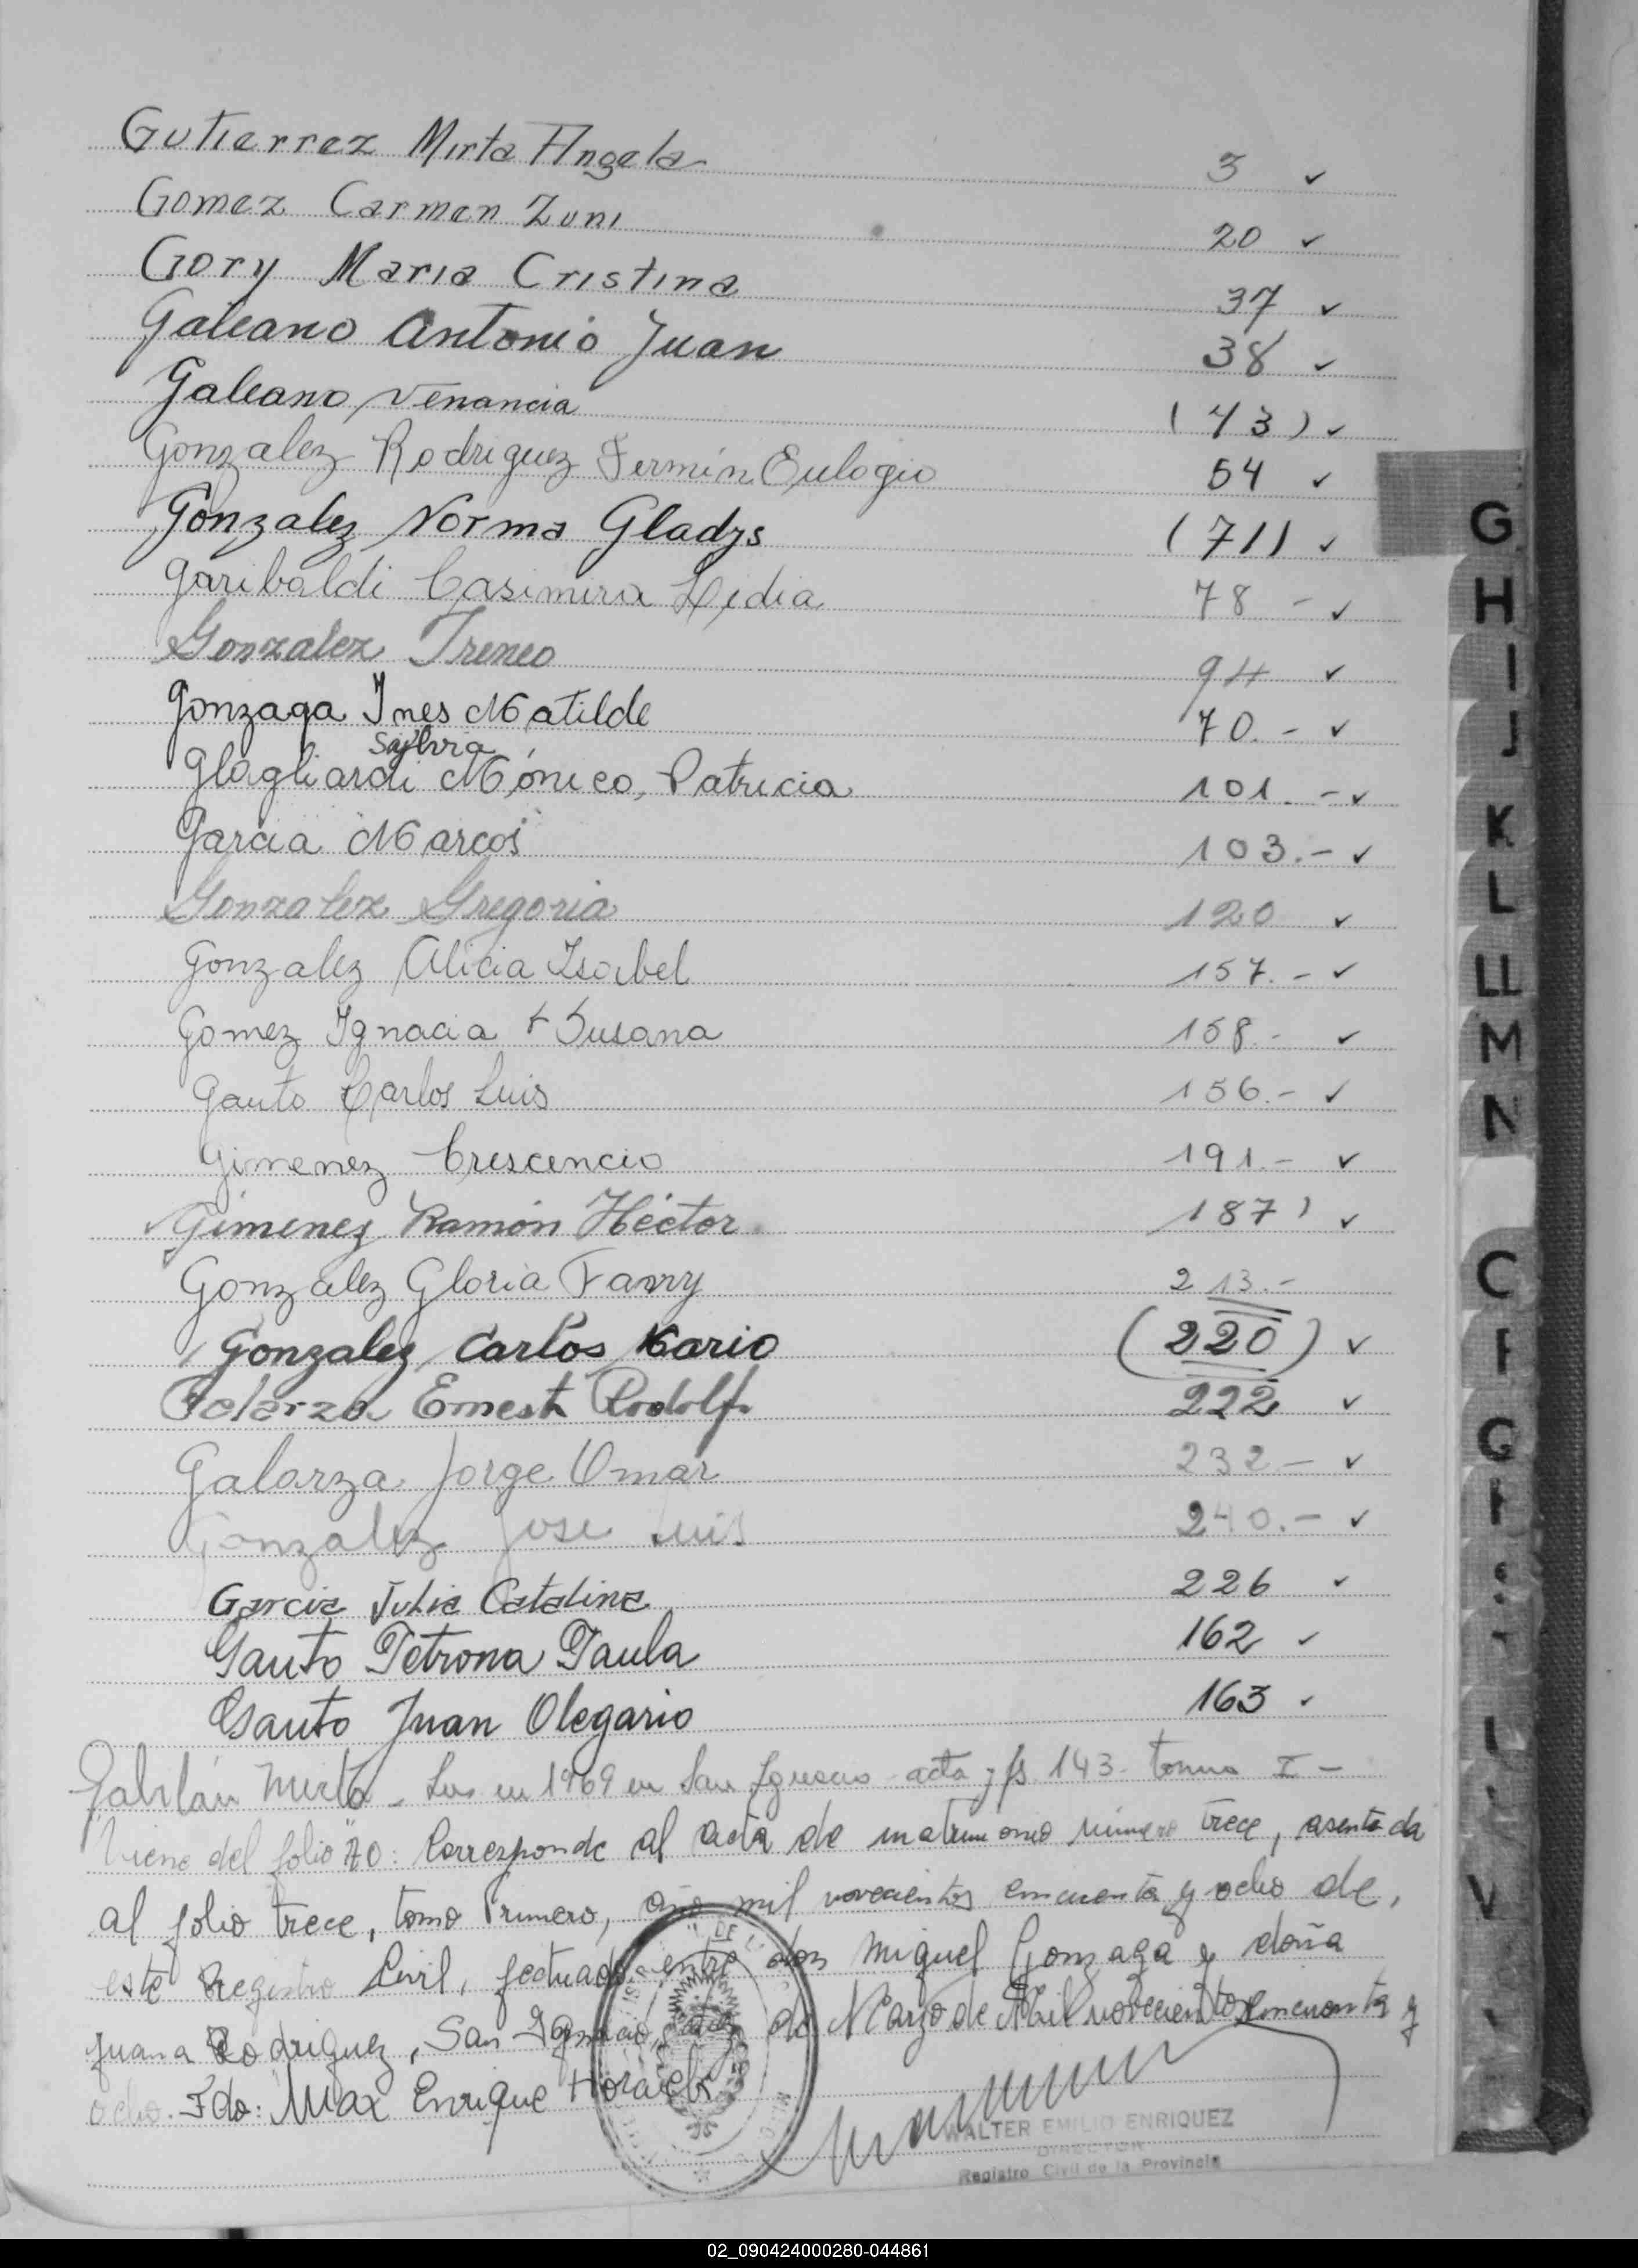 Gutierrez Mirta Angela 3 ✓
Gomez Carmen Zuni 20 ✓
Gory Maria Cristina 37 ✓
Galeano Antonio Juan 38 ✓
Galeano Venancia (43) ✓
Gonzalez Rodriguez Fermín Eulogio 54 ✓
Gonzalez Norma Gladys (71) ✓
Garibaldi Casimira Lidia 78 - ✓
Gonzalez Ireneo 94 ✓
Gonzaga Ines Matilde 70.- ✓
Mónica, Patricia 101.- ✓
Garcia Marcos 103.- ✓
Gonzalez Gregoria 120 ✓
Gonzalez Alicia Isabel 157.- ✓
Gomez Ignacia Susana 158.- ✓
Gauto Carlos Luis 156.- ✓
Gimenez Crescencio 191.- ✓
Gimenez Ramón Héctor 187) ✓
Gonzalez Gloria Fanny 213.-
Gonzalez Carlos Mario (220) ✓
Ernesto Rodolfo 222 ✓
Galarza Jorge Omar 232.- ✓
Gonzalez Jose Luis 240.- ✓
Garcia Julia Catalina 226 ✓
Gauto Petrona Paula 162 ✓
Gauto Juan Olegario 163 ✓
Mirta - en 1969 en San Ignacio - acta y fs. 143 - tomo I -
Viene del folio 70: Corresponde al acta de matrimonio número trece, asentada
al folio trece, tomo Primero, año mil novecientos cincuenta y ocho de,
este Registro Civil, entre don Miguel Gonzaga y doña
Juana Rodriguez, San Ignacio, de Marzo de Mil novecientos cincuenta y
ocho. Fdo: Max Enrique
WALTER EMILIO ENRIQUEZ
DIRECTOR
Registro Civil de la Provincia
G
H
I
J
K
L
LL
M
N
C
F
G
V
02_090424000280-044861